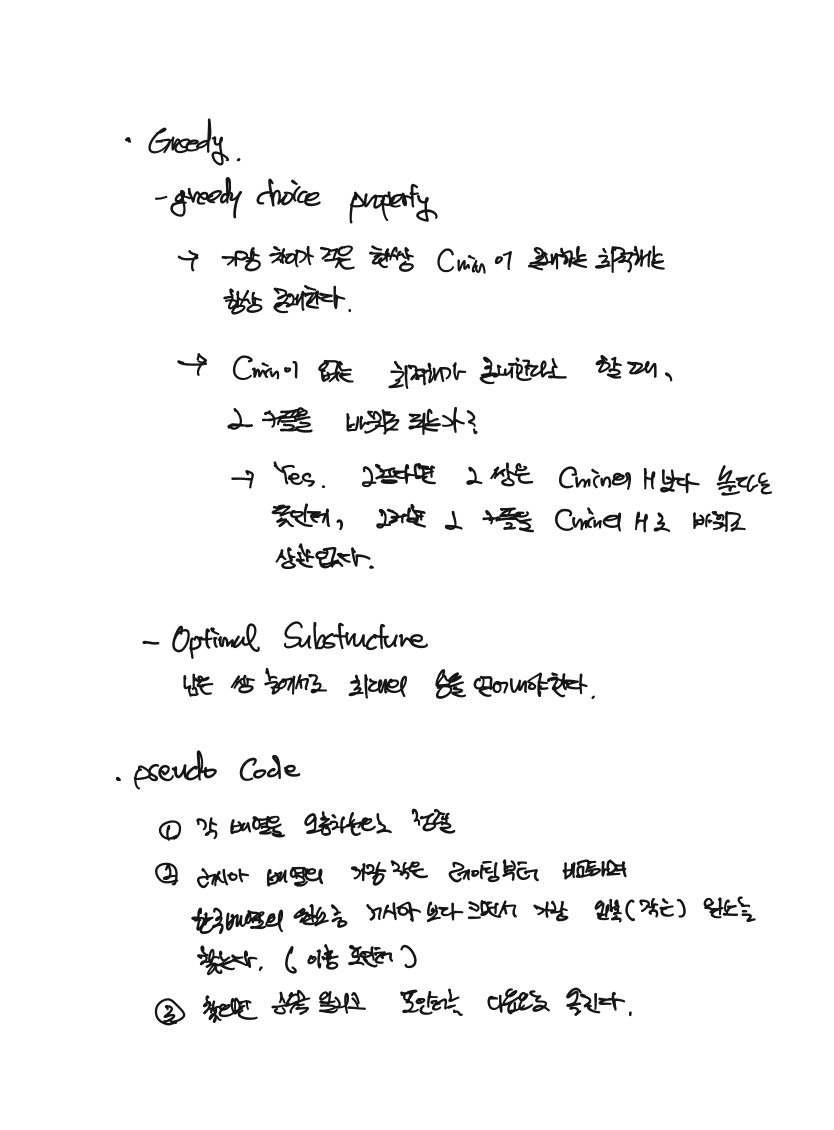 · Greedy.
- greedy choice property
→ 가장 차이가 적은 한쌍 Cmin이 존재하는 최적해는
항상 존재한다.
→ Cmin이 없는 최적해가 존재한다고 할 때,
그 커플을 바꿔도 되는가?
→ Yes. 그렇다면 그 쌍은 Cmin의 H보다 높다는
뜻인데, 그러면 그 커플을 Cmin의 H로 바꿔도
상관 없다.
- Optimal Substructure
남은 쌍 들에서도 최대의 승을 얻어내야한다.
· pseudo code
① 각 배열을 오름차순으로 정렬
② 러시아 배열의 가장 작은 레이팅부터 비교하며
한국배열의 원소중 러시아 보다 크면서 가장 왼쪽(작은) 원소를
찾는다. (이중 포인터)
③ 찾으면 승수 올리고 포인터는 다음으로 옮긴다.